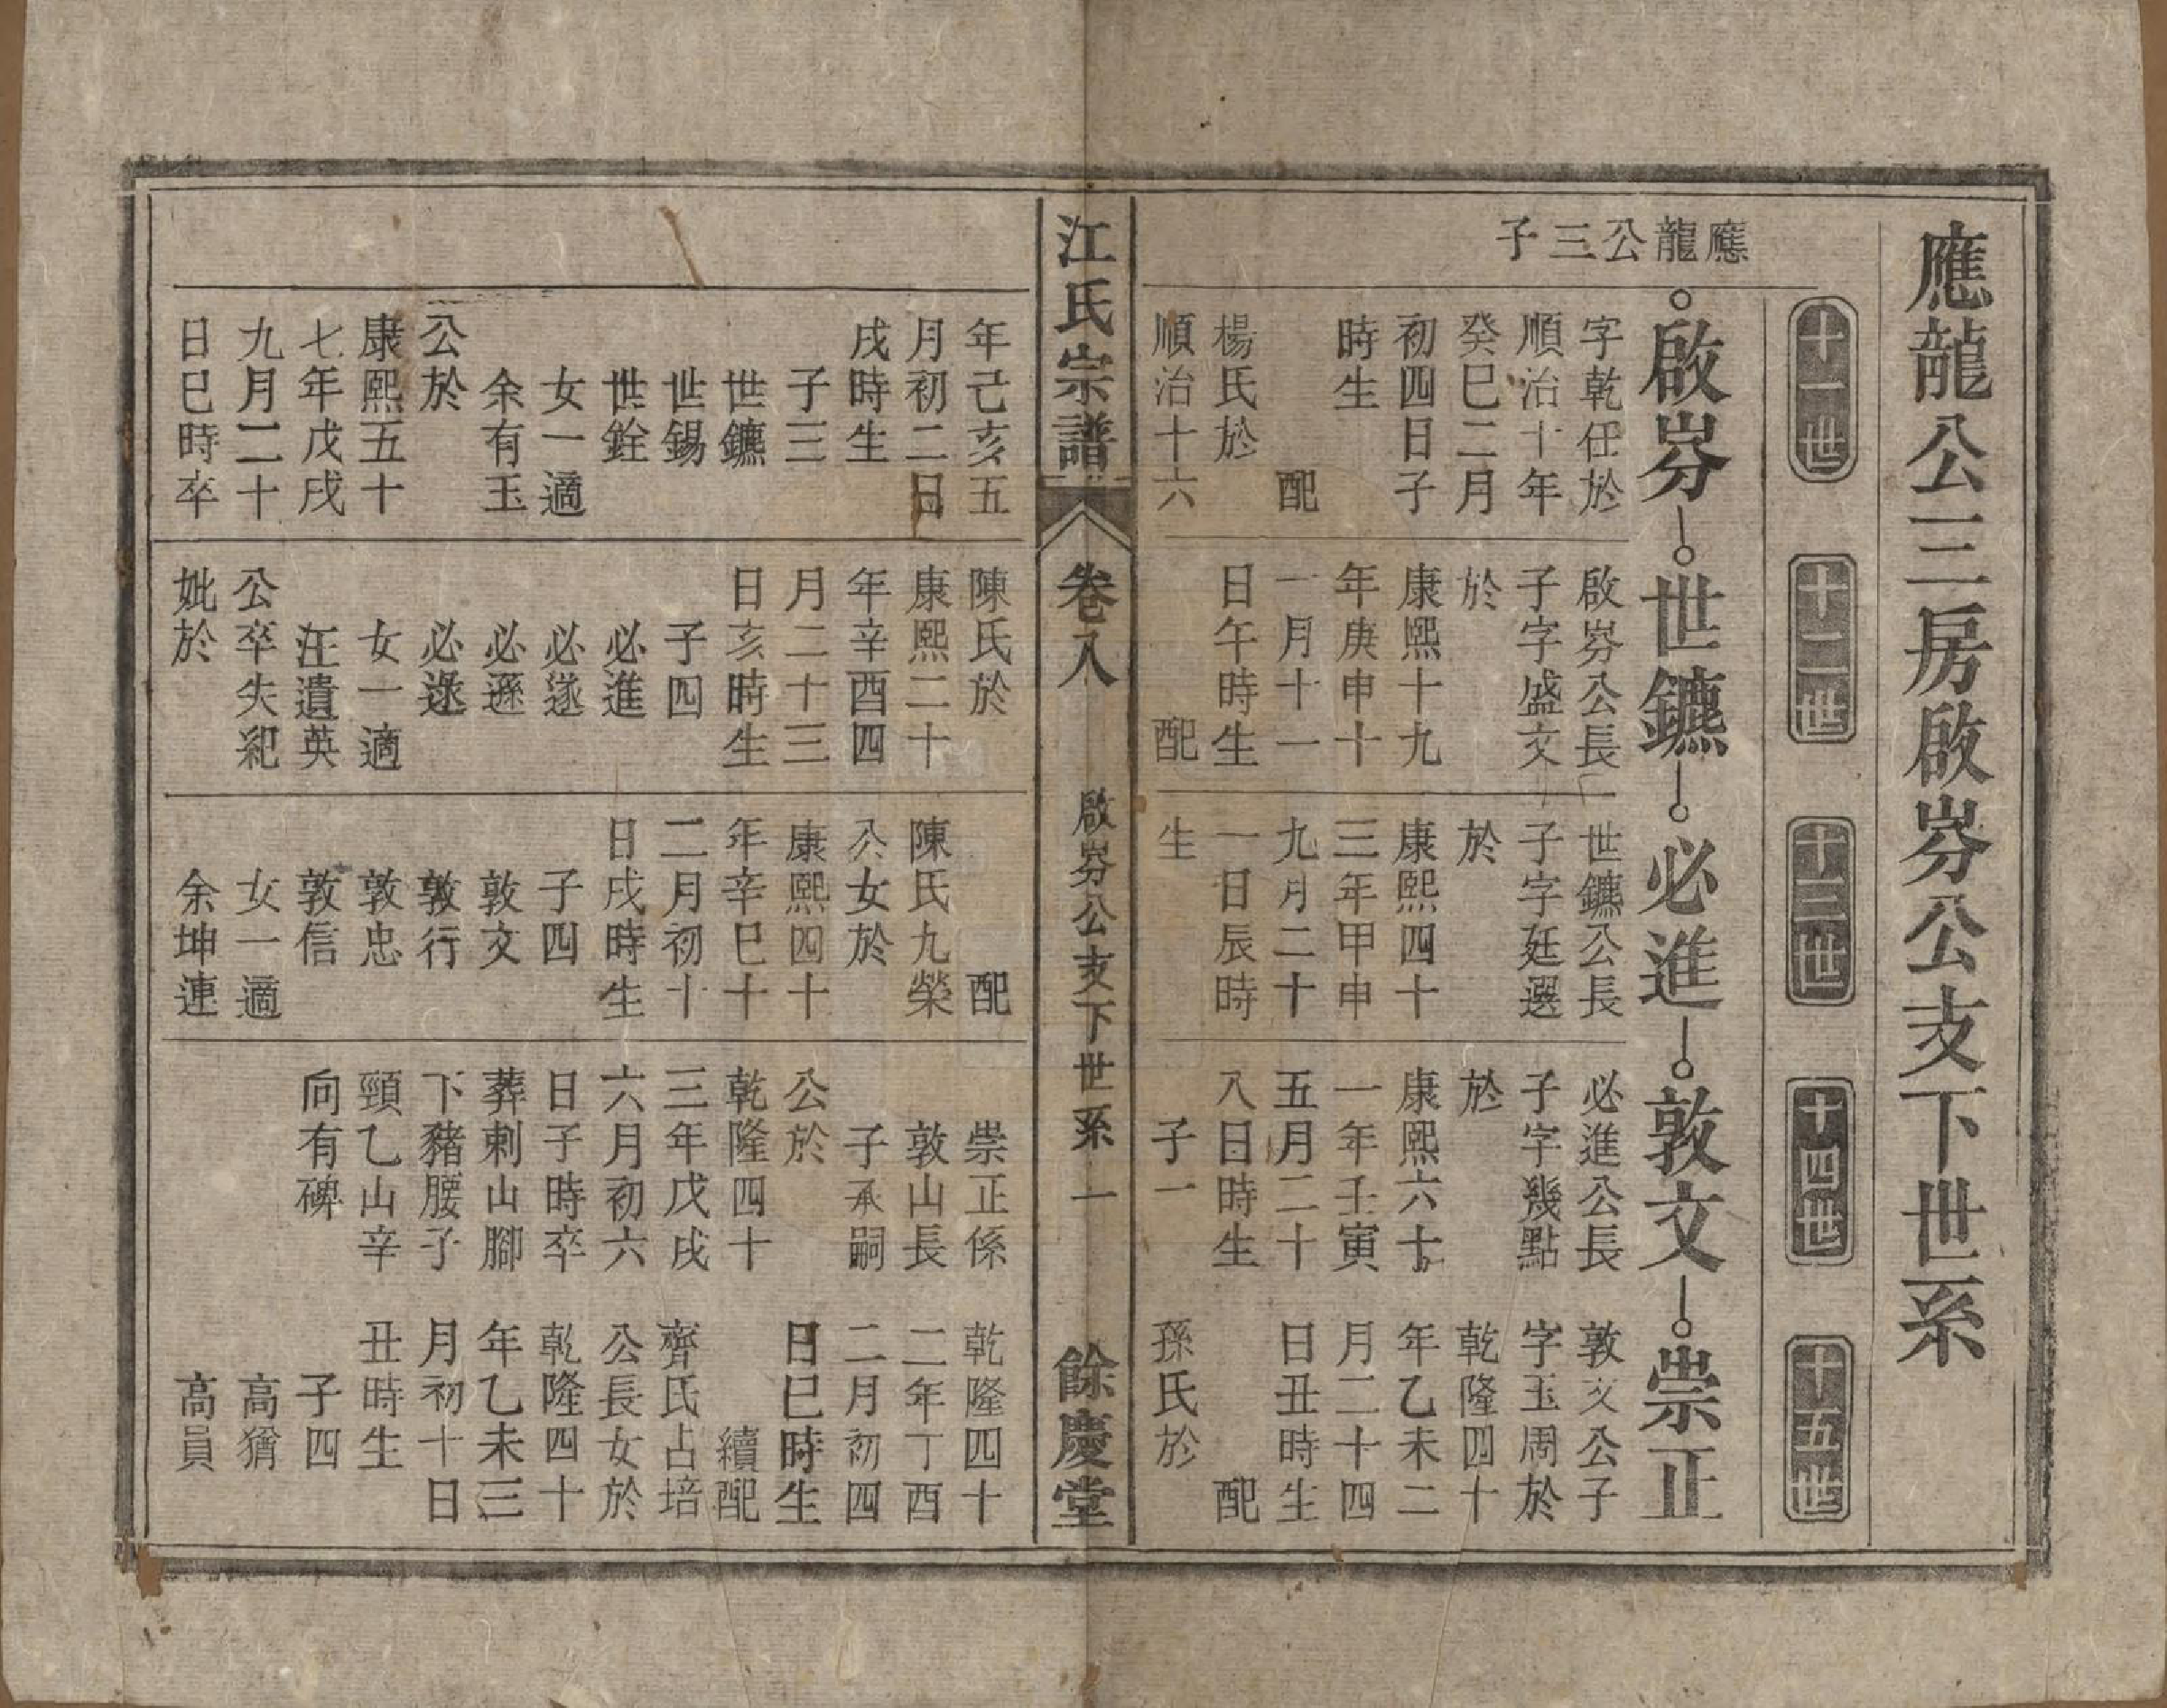 應龍公三房啟岎公支下世系
十一世
十二世
十三世
十四世
十五世
應龍公三子
啟岎
世鑣
必進
敦文
崇正
字乾任於
順治十年
癸巳二月
初四日子
時生
配
楊氏於
順治十六
啟岎公長
子字盛文
於
康熙十九
年庚申十
一月十一
日午時生
配
世鑣公長
子字廷選
於
康熙四十
三年甲申
九月二十
一日辰時
生
必進公長
子字幾點
於
康熙六十
一年壬寅
五月二十
八日時生
子一
敦文公子
字玉周於
乾隆四十
年乙未二
月二十四
日丑時生
配
孫氏於
江氏宗譜
卷八
啟岎公支下世系
一
餘慶堂
年己亥五
月初二日
戌時生
子三
世鑣
世錫
世銓
女一適
余有玉
公於
康熙五十
七年戊戌
九月二十
日巳時卒
陳氏於
康熙二十
年辛酉四
月二十三
日亥時生
子四
必進
必遂
必遜
必逯
女一適
汪遺英
公卒失紀
妣於
配
陳氏九榮
公女於
康熙四十
年辛巳十
二月初十
日戌時生
子四
敦文
敦行
敦忠
敦信
女一適
余坤連
崇正係
敦山長
子承嗣
公於
乾隆四十
三年戊戌
六月初六
日子時卒
葬剌山腳
下豬腰子
頸乙山辛
向有碑
乾隆四十
二年丁酉
二月初四
日巳時生
續配
齊氏占培
公長女於
乾隆四十
年乙未三
月初十日
丑時生
子四
高猶
高員